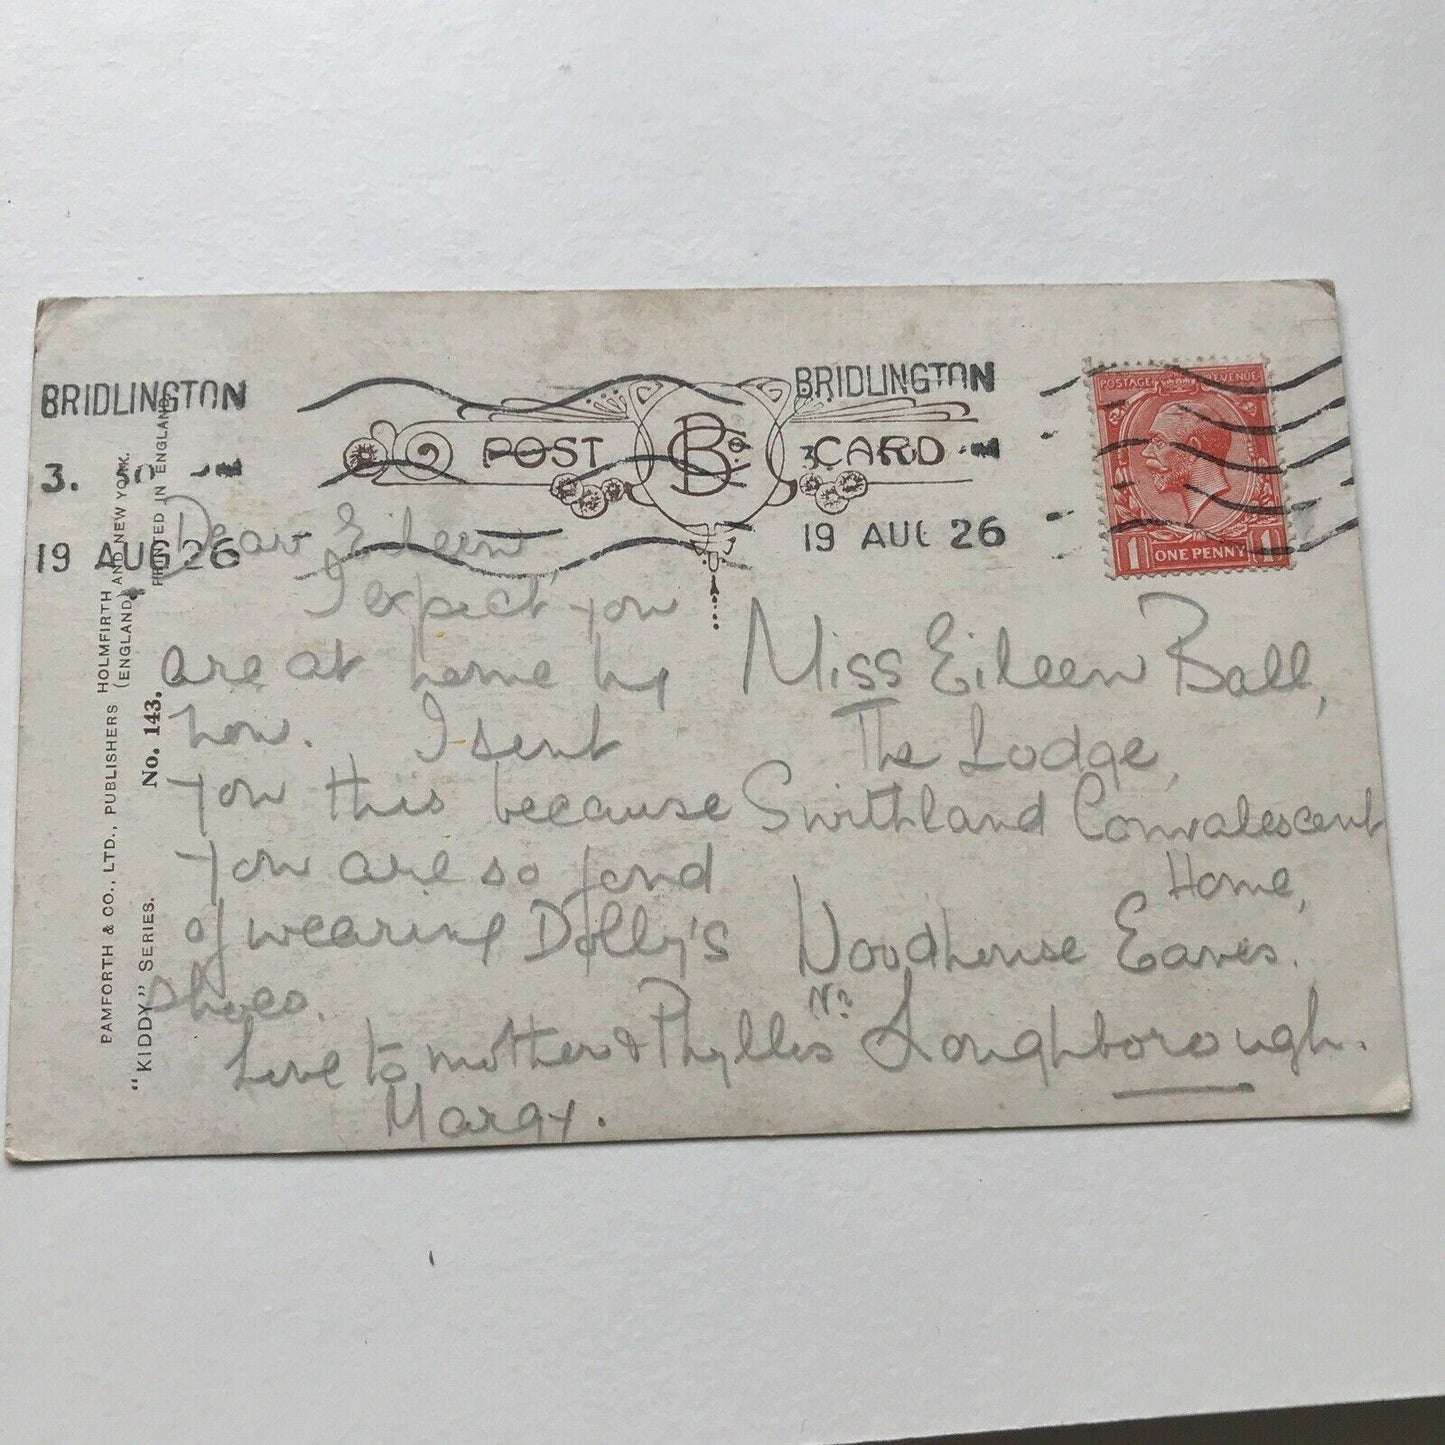 BRIDLINGTON
3.
19 AUG 26
POST BCo CARD
BRIDLINGTON
3.
19 AUG 26
POSTAGE REVENUE
1 ONE PENNY 1
BAMFORTH & CO., LTD., PUBLISHERS HOLMFIRTH AND NEW YORK.
(ENGLAND)
PRINTED IN ENGLAND
No. 143.
"KIDDY" SERIES.
Dear Eileen,
I expect you
are at home by
now. I sent
you this because
you are so fond
of wearing Dolly's
shoes.
Love to mother & Phyllis
Margy.
Miss Eileen Ball,
The Lodge,
Swithland Convalescent
Home,
Woodhouse Eaves.
Nr Loughborough.